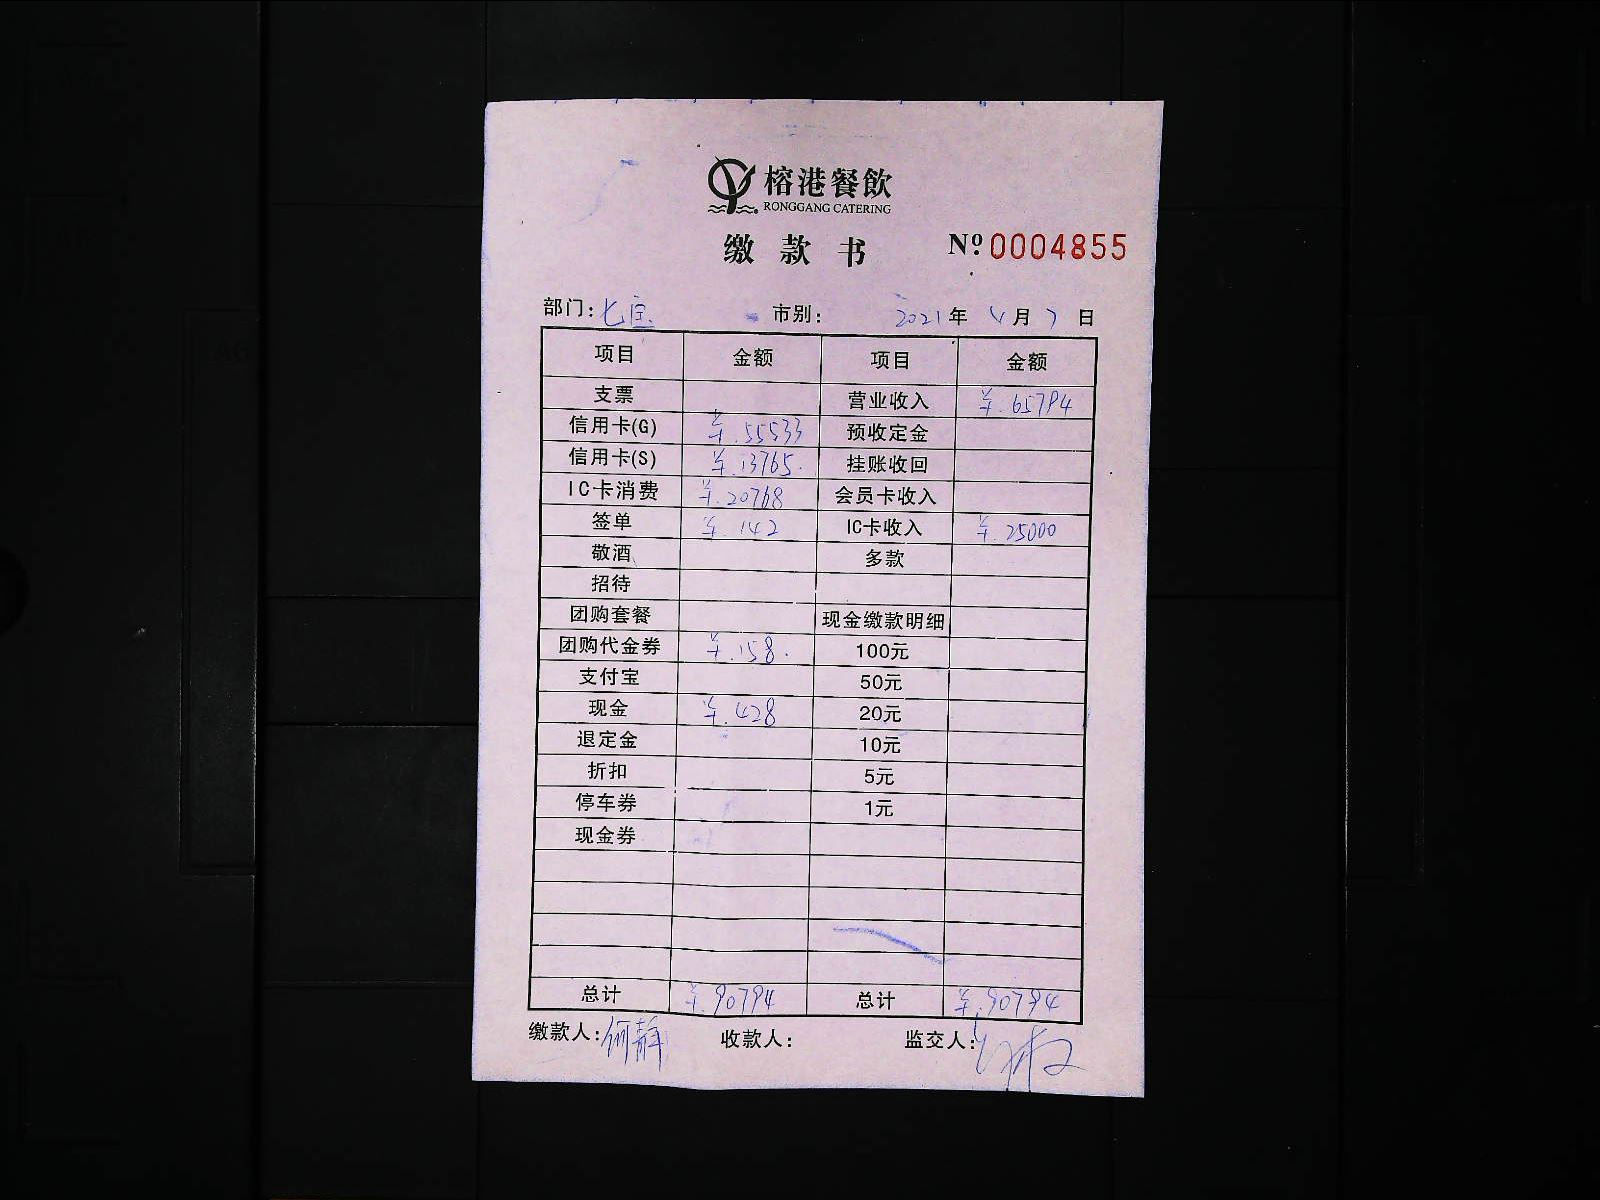 榕港餐飲
RONGGANG CATERING
缴款书 №0004855
部门:七宝 市别: 2021年4月7日
项目 金额 项目 金额
支票 营业收入 ¥.65794
信用卡(G) ¥.55533 预收定金
信用卡(S) ¥.13765. 挂账收回
IC卡消费 ¥.20768 会员卡收入
签单 ¥.142 IC卡收入 ¥.25000
敬酒 多款
招待
团购套餐 现金缴款明细
团购代金券 ¥.158. 100元
支付宝 50元
现金 ¥.428 20元
退定金 10元
折扣 5元
停车券 1元
现金券
总计 ¥.90794 总计 ¥.90794
缴款人:何静 收款人: 监交人: